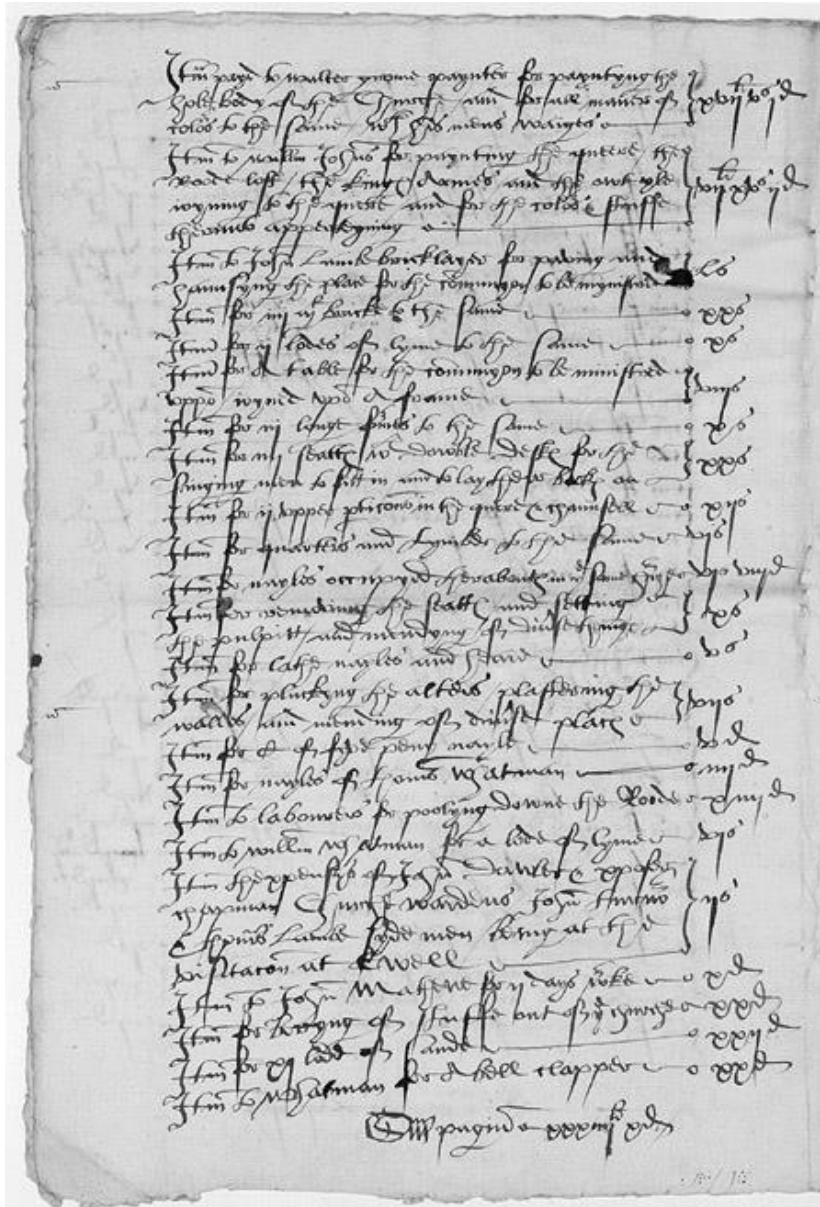 Itm payd to walter paynter for payntyng the
hole body of the Churche and for all maner of xvij li vs jd
colos to the same wt his mens waiges
Itm to willm Johns for paynting the queere the
Roode loft the kings Armes and the owt yle vij li xvs ijd
to the quere and for the colos & stuffe
therunto apperteyning
Itm to John Lambe bricklayer for paving and
the place for the comunyon to be mynistred Ls
Itm for iiij mł bricke to the same xxs
Itm for ij lodes of lyme to the same xs
Itm for A table for the comunyon to be ministred
uppo Joyned upo A frame viijs
Itm for iij longe formes to the same xs
Itm for iiij seatts wt dowble desks for the
singing men to sitt in and to lay ther bookes on xxs
Itm for ij upper pticons in the quere & chaunsell xijs
Itm for quarters and tymber to the same vis
Itm for nayles occupyed theraboute in same viijd
Itm for removing the seatts and setting
the pulpitt and mendyng of diverse things xs
Itm for lathe nayles and heare vs
Itm for pluckyng the alters plastering the
walles and mending of diverse places vijs
Itm for C of fyve peny nayle vd
Itm for nayles of thoms Whatman iiijd
Itm to labourers for poolyng downe the Roode
Itm to willm Whatman for a lode of lyme vis
Itm thexpensys of John Dawber & xpofer
Chapman Churche wardens John
& Lambe syde men being at the ijs
visitacon at Ewell
Itm to John Mathewe for ij days worke xd
Itm for of stuffe out of ye churche xxd
Itm for xj lode of sande xxijd
Itm to Whatman for A bell clapper xxd
Sm pagine xxxiiij li xd